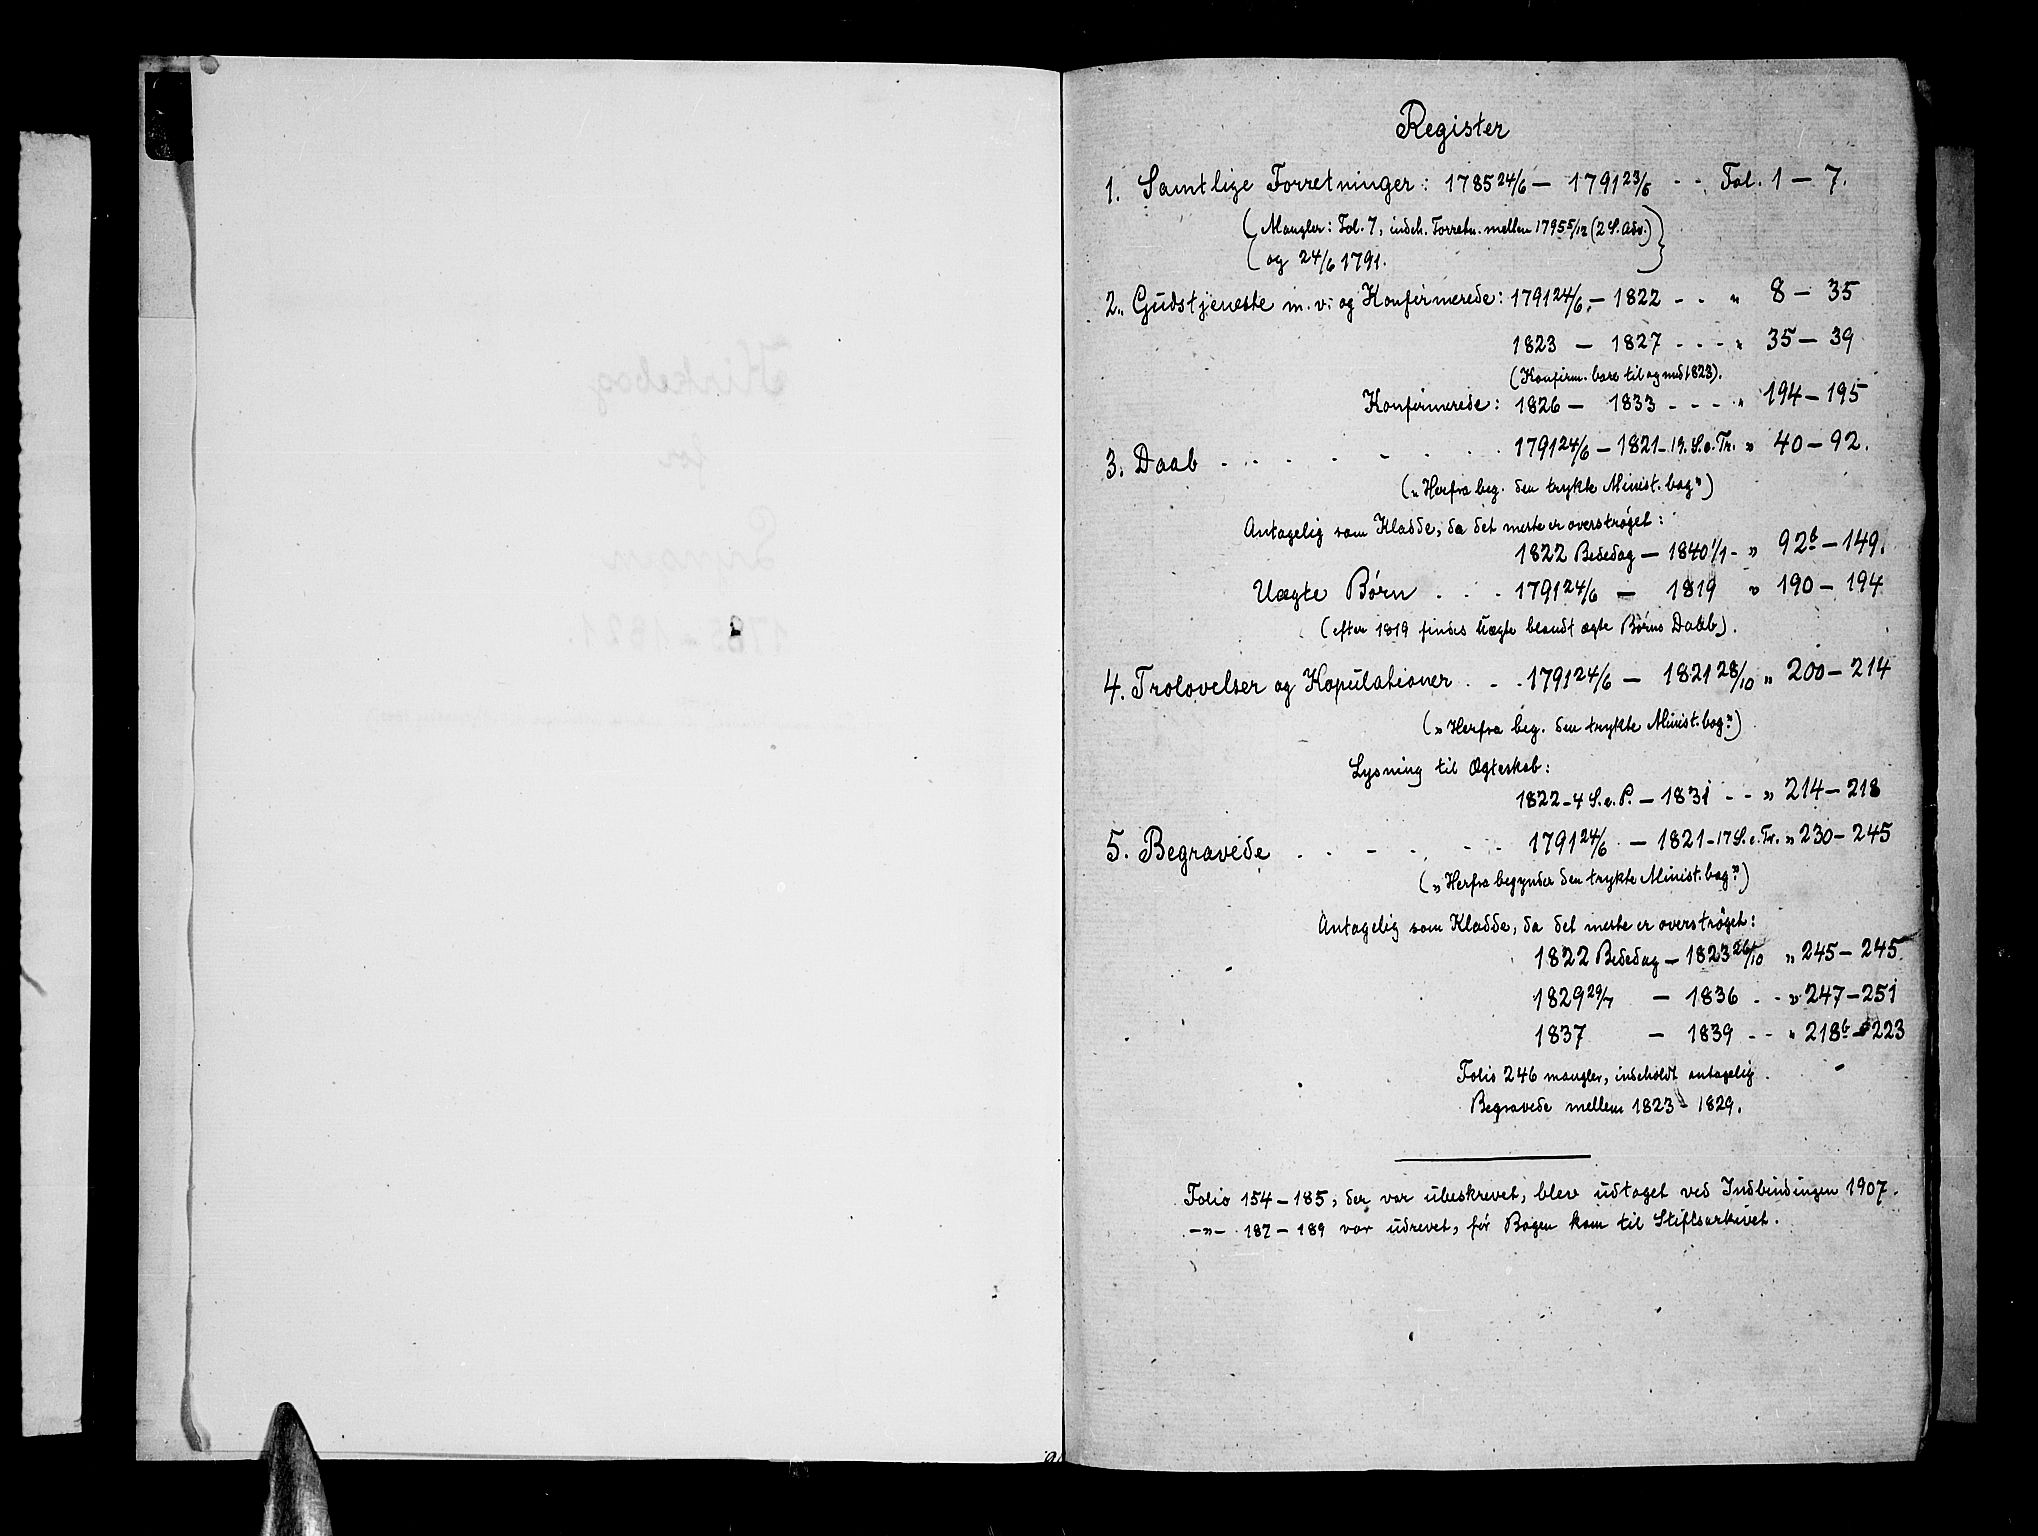 Register
1. Samtlige Forretninger: 1785 24/6 – 1791 23/6 - - Fol. 1 – 7.
(Mangler: Fol. 7, indeh. Forretn. mellem 1795 5/12 (2 S. Adv.)
og 24/6 1791.)
2. Gudstjeneste m. v. og Konfirmerede: 1791 24/6 – 1822 - - " 8 – 35
1823 – 1827 - - - " 35 – 39
(Konfirm. bare til og med 1823).
Konfirmerede: 1826 – 1833 - - - " 194 – 195
3. Daab - - - - - - - 1791 24/6 – 1821 - 19. S. e. Tr. " 40 – 92.
(„Herfra beg. den trykte Minist. bog")
Antagelig som Kladde, da det meste er overstrøget:
1822 Bededag – 1840 1/1 - " 92b – 149.
Uægte Børn . . . 1791 24/6 – 1819 " 190 – 194
(efter 1819 findes Uægte blandt ægte Børns Daab).
4. Trolovelser og Kopulationer . . . 1791 24/6 – 1821 28/10 " 200 – 214
(„Herfra beg. den trykte Minist. bog")
Lysning til Ægteskab:
1822 - 4 S. e. P. – 1831 - - " 214 – 218
5. Begravede . . - . - - 1791 24/6 – 1821 - 17 S. e. Tr. " 230 – 245
(„Herfra begynder den trykte Minist. bog")
Antagelig som Kladde, da det meste er overstrøget:
1822 Bededag – 1823 26/10 " 245 – 245
1829 29/7 – 1836 - - " 247 – 251
1837 – 1839 - - " 218b – 223
Folio 246 mangler, indeholdt antagelig
Begravede mellem 1823 – 1829.
Folio 154 – 185, der var ubeskrevet, blev udtaget ved Indbindingen 1907.
–"– 187 – 189 var udrevet, før Bogen kom til Stiftsarkivet.